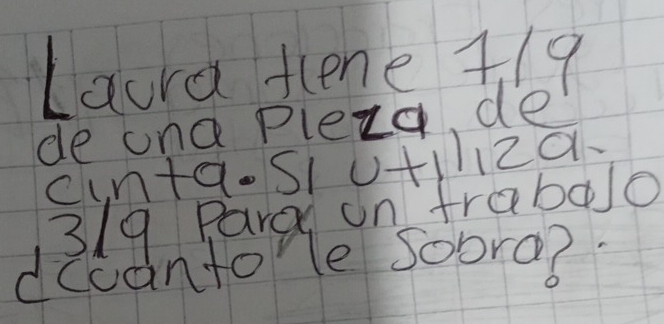 Laura tiene 7/9
de una pieza de
cinta. Si utiliza.
3/9 Para un trabajo
¿cuanto le sobra?.